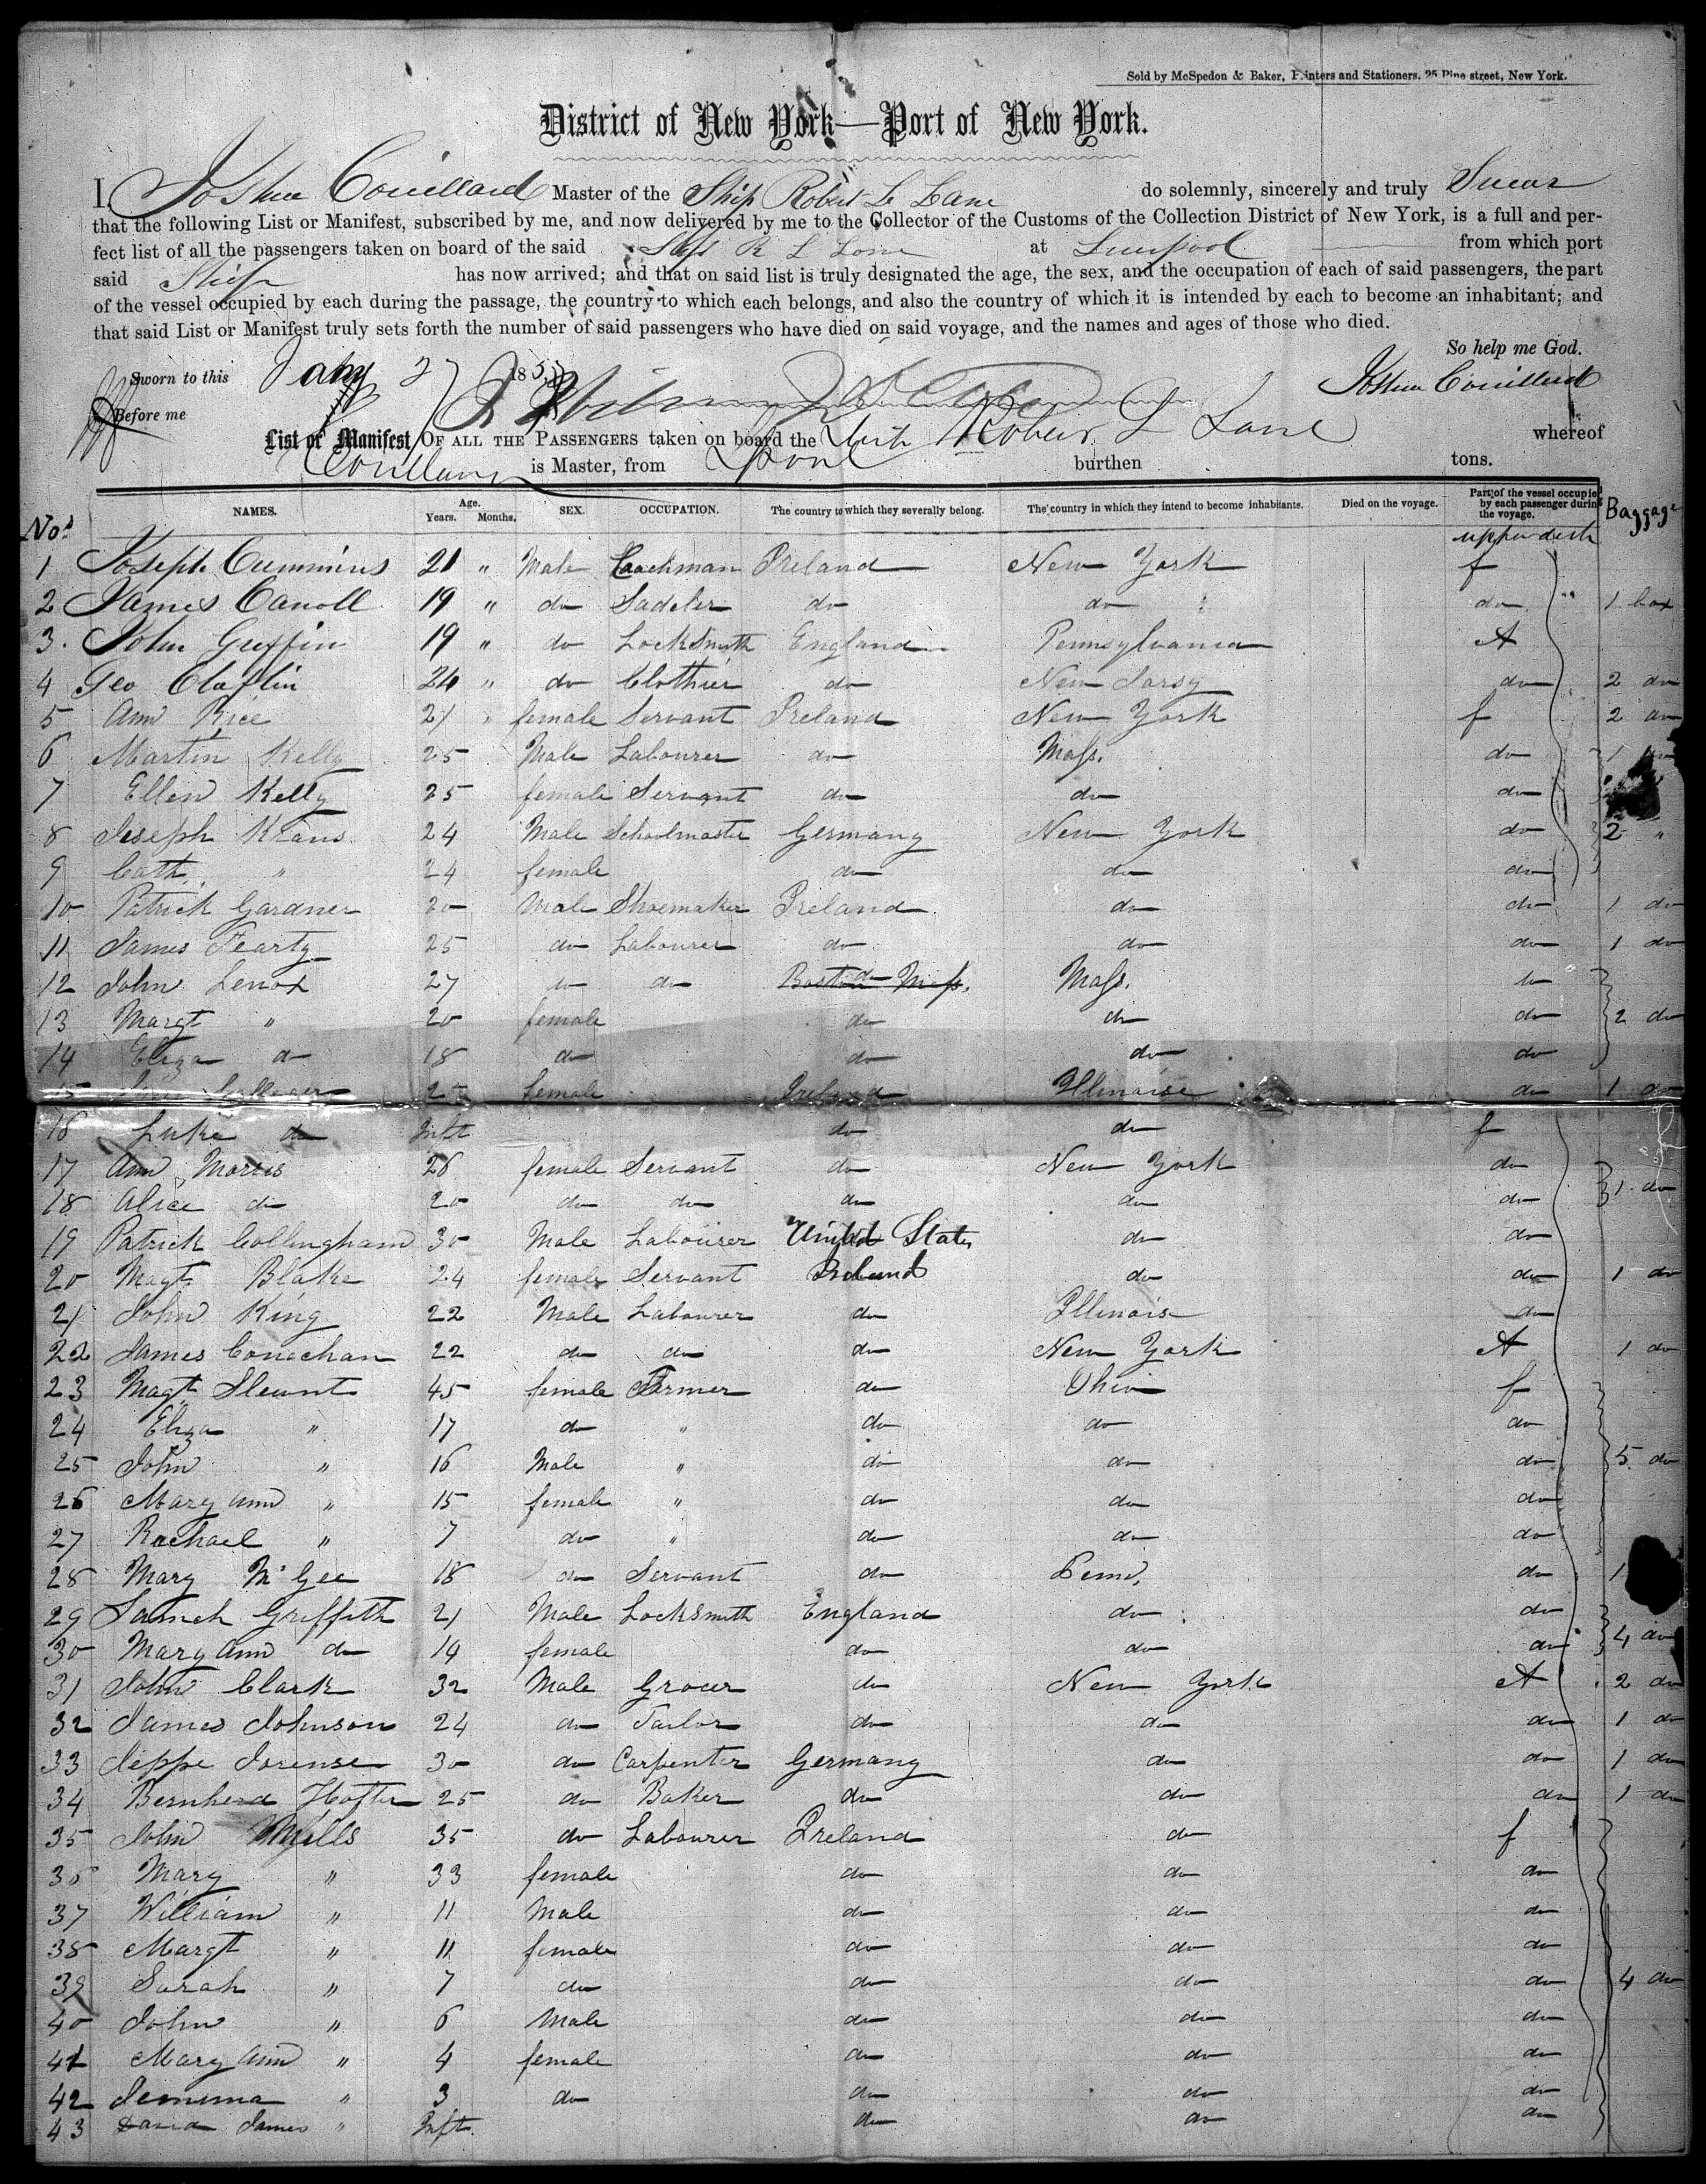 Sold by McSpedon & Baker, Printers and Stationers, 25 Pine street, New York.
District of New York—Port of New York.
I, Joshua Couillard Master of the Ship Robert L Lane do solemnly, sincerely and truly Swear
that the following List or Manifest, subscribed by me, and now delivered by me to the Collector of the Customs of the Collection District of New York, is a full and per-
fect list of all the passengers taken on board of the said Ship R L Lane at Liverpool from which port
said Ship has now arrived; and that on said list is truly designated the age, the sex, and the occupation of each of said passengers, the part
of the vessel occupied by each during the passage, the country to which each belongs, and also the country of which it is intended by each to become an inhabitant; and
that said List or Manifest truly sets forth the number of said passengers who have died on said voyage, and the names and ages of those who died.
So help me God.
Sworn to this Jany 2 185 Joshua Couillard
Before me
List or Manifest OF ALL THE PASSENGERS taken on board the Robert L Lane whereof
Couillard is Master, from Lpool burthen tons.
NAMES. Age. Years. Months. SEX. OCCUPATION. The country to which they severally belong. The country in which they intend to become inhabitants. Died on the voyage. Part of the vessel occupied by each passenger during the voyage. Baggage
Nos upper deck
1 Joseph Cummins 21 " Male Coachman Ireland New York f
2 James Caroll 19 " do Sadeler do do do " 1 box
3. John Griffin 19 " do Locksmith England Pennsylvania A
4 Geo Claflin 24 " do Clothier do New Jarsy do 2 do
5 Ann Rice 21 " female Servant Ireland New York f 2 do
6 Martin Kelly 25 Male Labourer do Mass. do 1 do
7 Ellen Kelly 25 female Servant do do do
8 Joseph Kraus 24 Male Schoolmaster Germany New York do 2 "
9 Cath. " 24 female do do do
10 Patrick Gardner 20 Male Shoemaker Ireland do do 1 do
11 James Fearty 25 do Labourer do do do 1 do
12 John Lenox 27 do do Boston Mass. do Mass. do
13 Margt " 20 female do do do 2 do
14 Eliza do 18 do do do do
15 25 female Ireland Illinoise do 1 do
16 Luke do Inft do do f
17 Ann Morris 26 female Servant do New York do
18 Alice do 20 do do do do do 1 do
19 Patrick Collingham 30 Male Labourer United States do do
20 Magt Blake 24 female Servant Ireland do do 1 do
21 John King 22 Male Labourer do Illinois do
22 James Conechan 22 do do do New York A 1 do
23 Magt Slevnt 45 female Farmer do Ohio f
24 Eliza " 17 do " do do do
25 John " 16 Male " do do do 5 do
26 Mary Ann " 15 female " do do do
27 Rachael " 7 do " do do do
28 Mary McGee 18 do Servant do Penn. do 1
29 Griffith 21 Male Locksmith England do do
30 Mary Ann do 19 female do do do 4 do
31 John Clark 32 Male Grocer do New York A 2 do
32 James Johnson 24 do Tailor do do do 1 do
33 Jeppe Sorense 30 do Carpenter Germany do do 1 do
34 Bernherd Hofter 25 do Baker do do do 1 do
35 John Mills 35 do Labourer Ireland do f
36 Mary " 33 female do do do
37 William " 11 Male do do do
38 Margt " 11 female do do do
39 Sarah " 7 do do do do 4 do
40 John " 6 Male do do do
41 Mary Ann " 4 female do do do
42 Jemima " 3 do do do do
43 David James " Inft. do do do